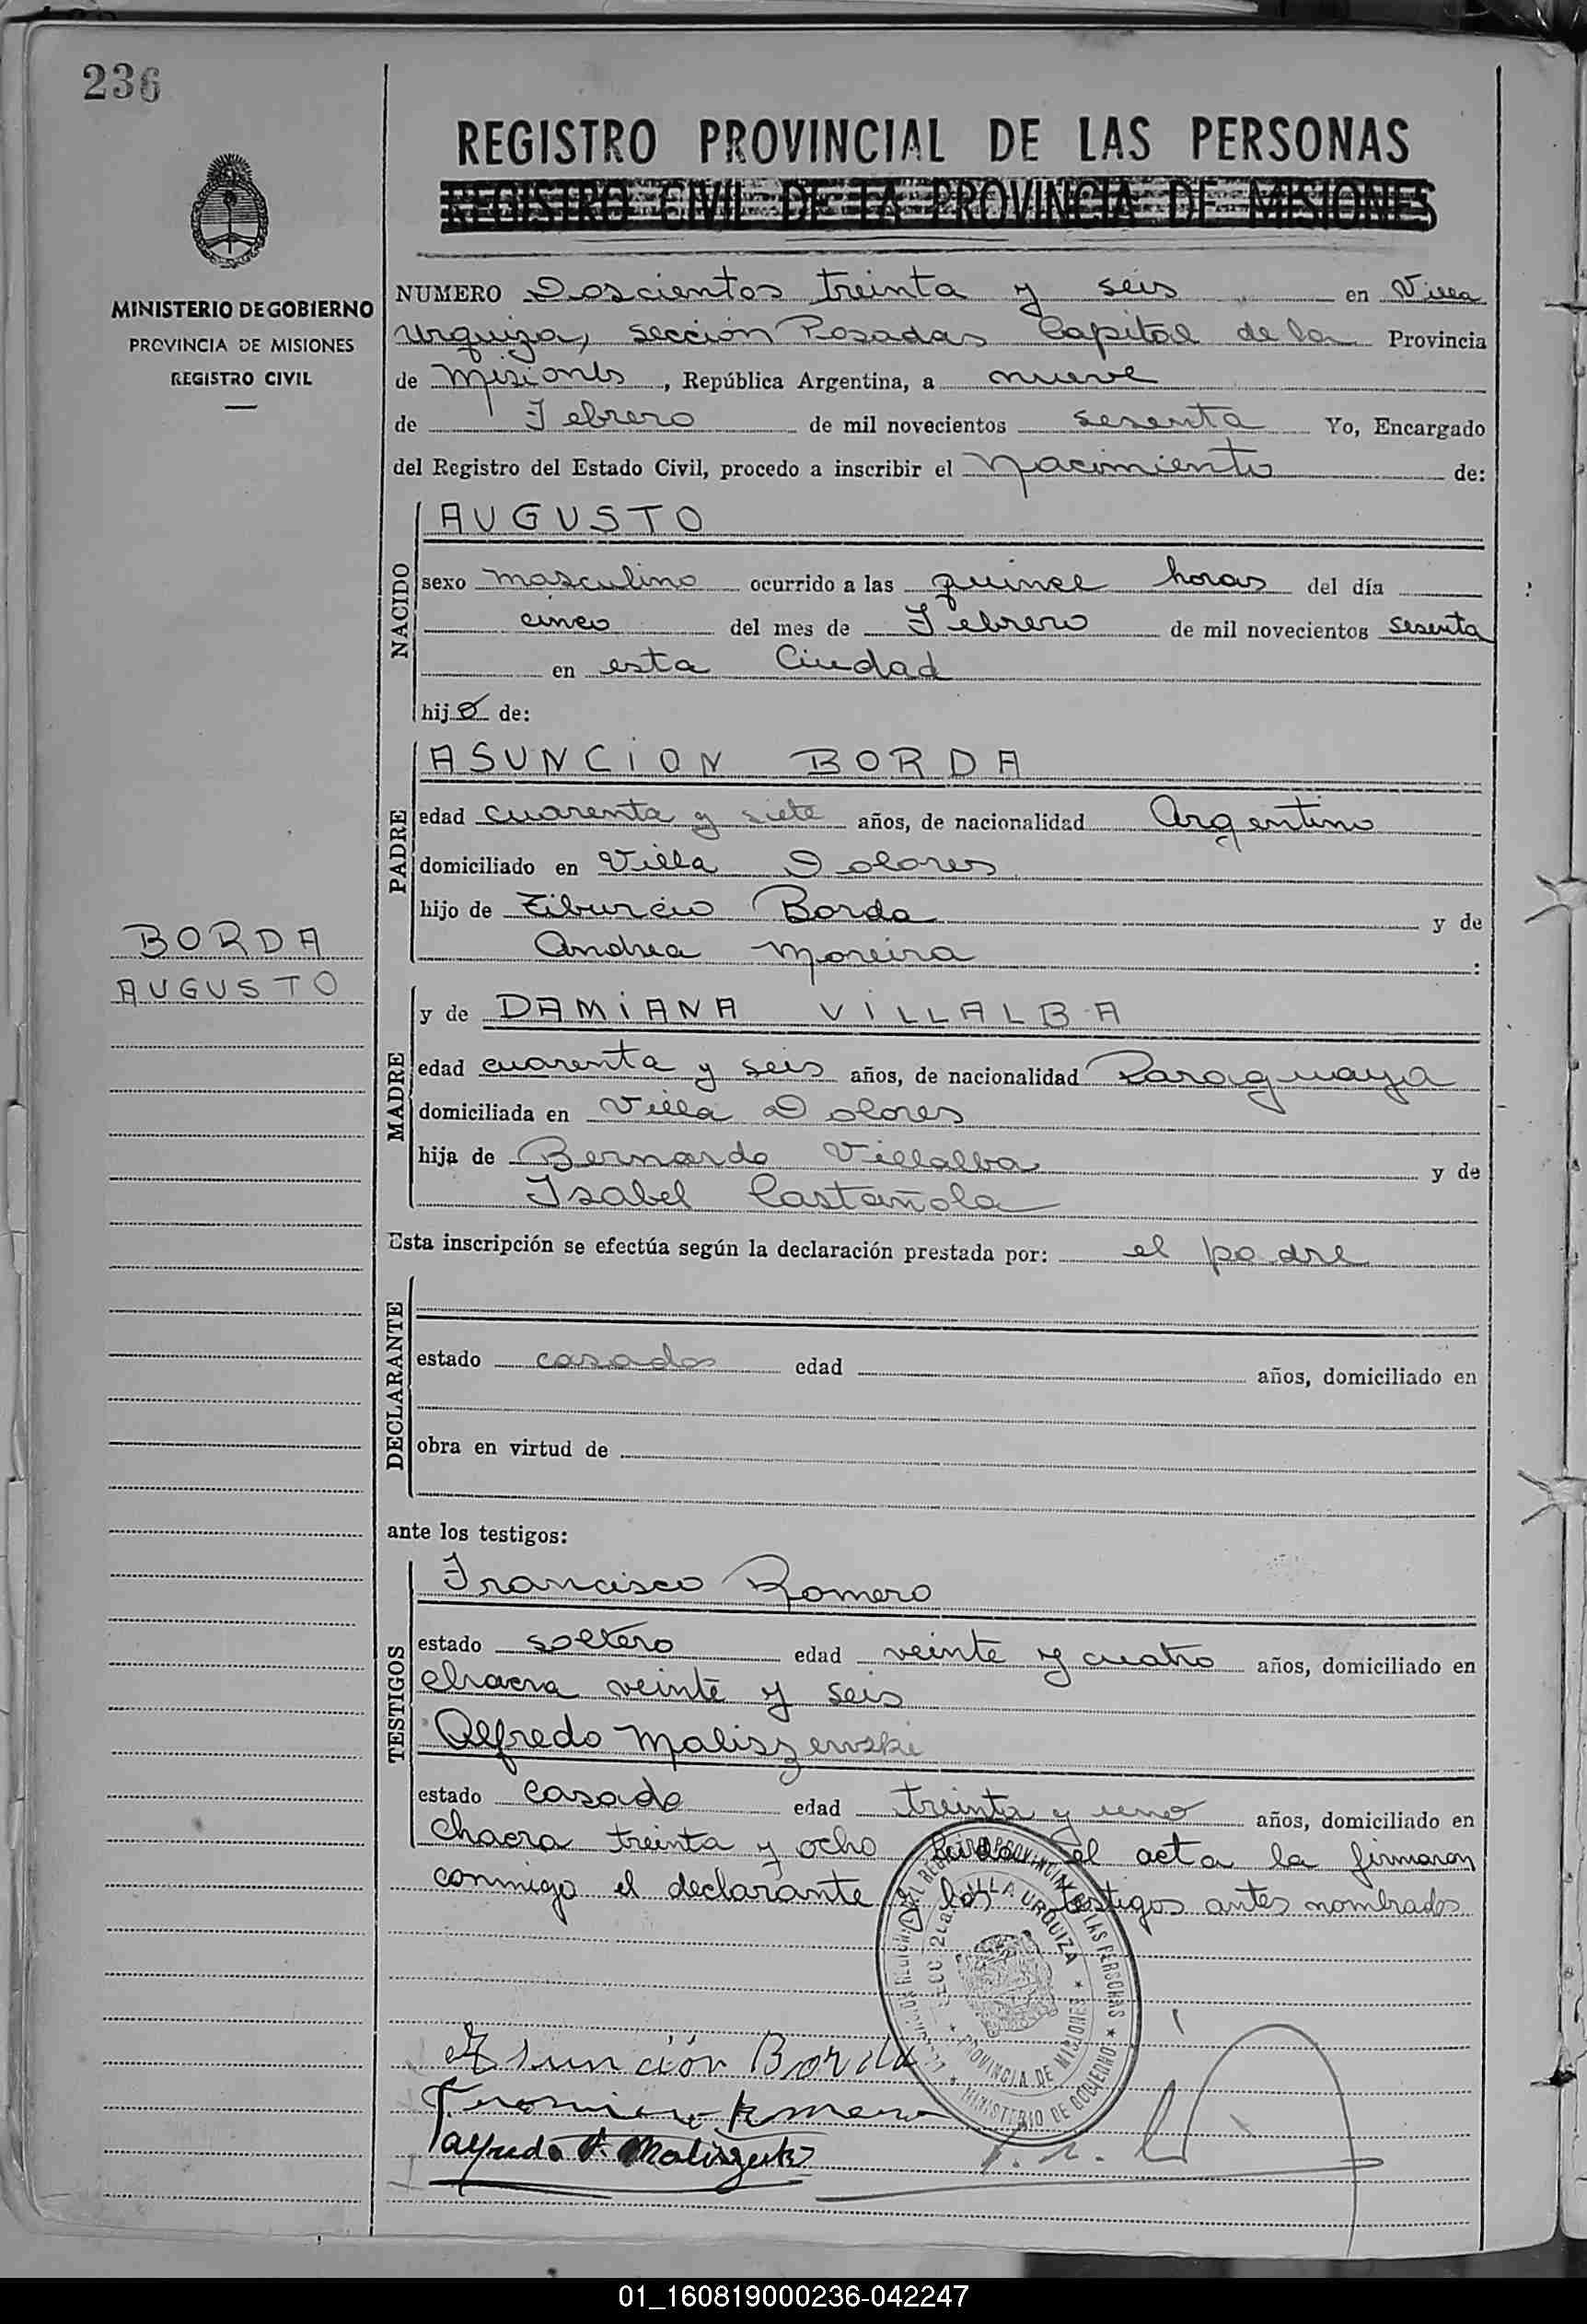 236
REGISTRO PROVINCIAL DE LAS PERSONAS
REGISTRO CIVIL DE LA PROVINCIA DE MISIONES
MINISTERIO DE GOBIERNO
PROVINCIA DE MISIONES
REGISTRO CIVIL
NUMERO Doscientos treinta y seis en Villa
Urquiza, sección Posadas Capital de la Provincia
de Misiones, República Argentina, a nueve
de Febrero de mil novecientos sesenta Yo, Encargado
del Registro del Estado Civil, procedo a inscribir el Nacimiento de:
NACIDO
AUGUSTO
sexo masculino ocurrido a las quince horas del día
cinco del mes de Febrero de mil novecientos sesenta
en esta Ciudad
hijo de:
PADRE
ASUNCION BORDA
edad cuarenta y siete años, de nacionalidad Argentino
domiciliado en Villa Dolores
hijo de Tiburcio Borda y de
Andrea Moreira :
BORDA
AUGUSTO
MADRE
y de DAMIANA VILLALBA
edad cuarenta y seis años, de nacionalidad Paraguaya
domiciliada en Villa Dolores
hija de Bernardo Villalba y de
Isabel Castañola
Esta inscripción se efectúa según la declaración prestada por: el padre
DECLARANTE
estado casado edad años, domiciliado en
obra en virtud de
ante los testigos:
TESTIGOS
Francisco Romero
estado soltero edad veinte y cuatro años, domiciliado en
chacra veinte y seis
Alfredo Maliszewski
estado casado edad treinta y uno años, domiciliado en
chacra treinta y ocho Leida el acta la firmaron
conmigo el declarante y los testigos antes nombrados
VILLA URQUIZA
PROVINCIA DE MISIONES
MINISTERIO DE GOBIERNO
Asunción Borda
Francisco Romero
01_160819000236-042247